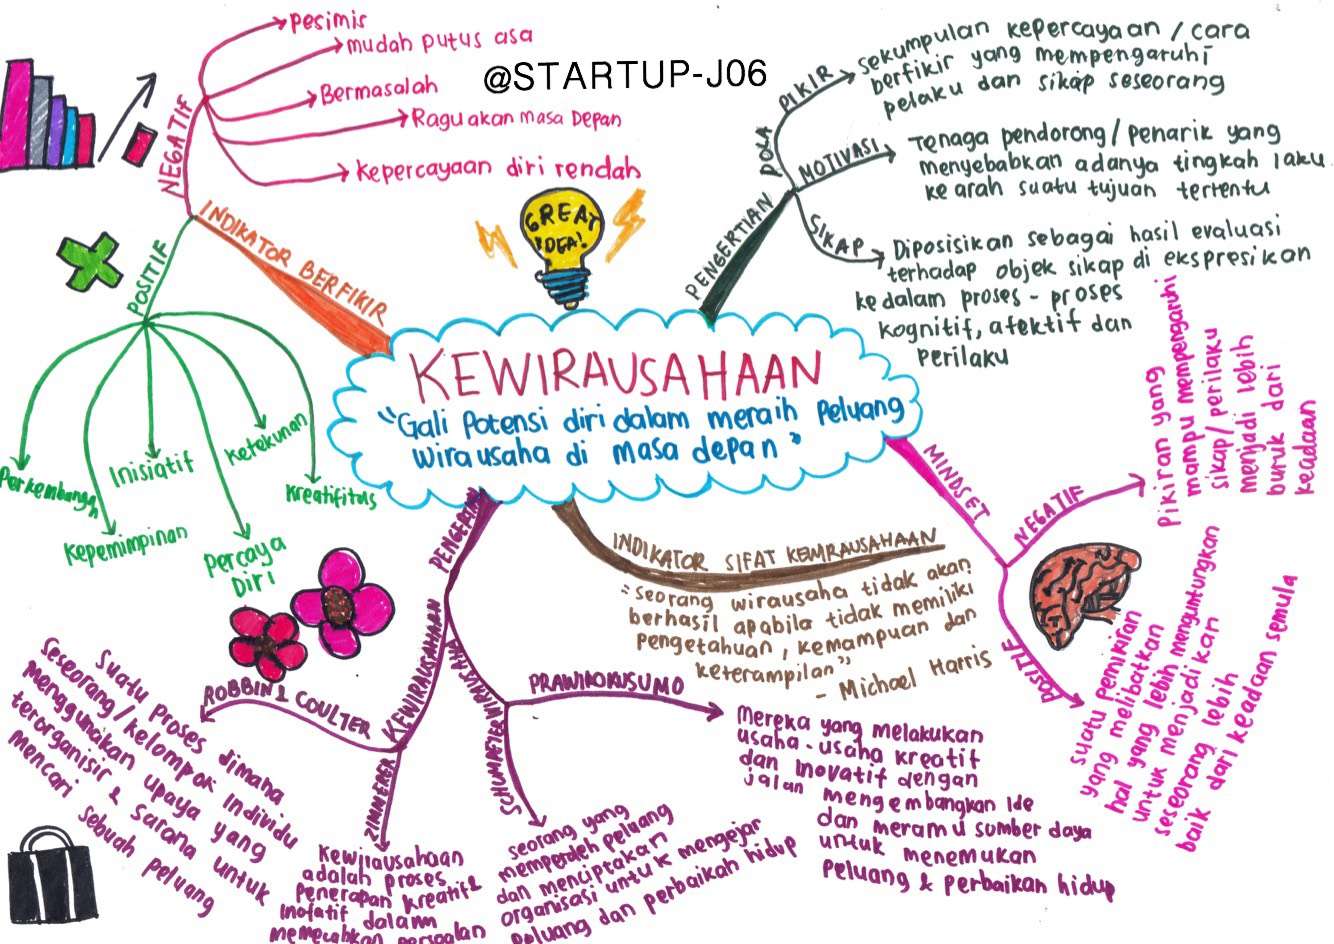 @STARTUP-J06
KEWIRAUSAHAAN
"Gali Potensi diri dalam meraih Peluang
wirausaha di masa depan"
GREAT
IDEA!
INDIKATOR BERFIKIR
NEGATIF
pesimis
mudah putus asa
Bermasalah
Ragu akan masa Depan
Kepercayaan diri rendah
POSITIF
Perkembangan
Kepemimpinan
Inisiatif
Percaya
Diri
Ketekunan
Kreatifitas
PENGERTIAN
POLA PIKIR
Sekumpulan kepercayaan / cara
berfikir yang mempengaruhi
pelaku dan sikap seseorang
MOTIVASI
Tenaga pendorong / penarik yang
menyebabkan adanya tingkah laku
ke arah suatu tujuan tertentu
SIKAP
Diposisikan sebagai hasil evaluasi
terhadap objek sikap di ekspresikan
ke dalam proses - proses
kognitif, afektif dan
perilaku
MINDSET
NEGATIF
Pikiran yang
mampu mempengaruhi
sikap/perilaku
menjadi lebih
buruk dari
keadaan
POSITIF
suatu pemikiran
yang melibatkan
hal yang lebih menguntungkan
untuk menjadikan
seseorang lebih
baik dari keadaan semula
INDIKATOR SIFAT KEWIRAUSAHAAN
"seorang wirausaha tidak akan
berhasil apabila tidak memiliki
pengetahuan, kemampuan dan
keterampilan"
- Michael Harris
PENGERTIAN
KEWIRAUSAHAAN
ROBBIN & COULTER
Suatu proses dimana
Seseorang/kelompok individu
menggunakan upaya yang
terorganisir & sarana untuk
mencari sebuah peluang
ZIMMERER
Kewirausahaan
adalah proses
Penerapan kreatif &
inofatif dalam
memecahkan persoalan
WIRAUSAHA
SCHUMPETER
seorang yang
memperoleh peluang
dan menciptakan
organisasi untuk mengejar
peluang dan perbaikan hidup
PRAWIROKUSUMO
Mereka yang melakukan
usaha-usaha kreatif
dan inovatif dengan
jalan mengembangkan ide
dan meramu sumber daya
untuk menemukan
peluang & perbaikan hidup